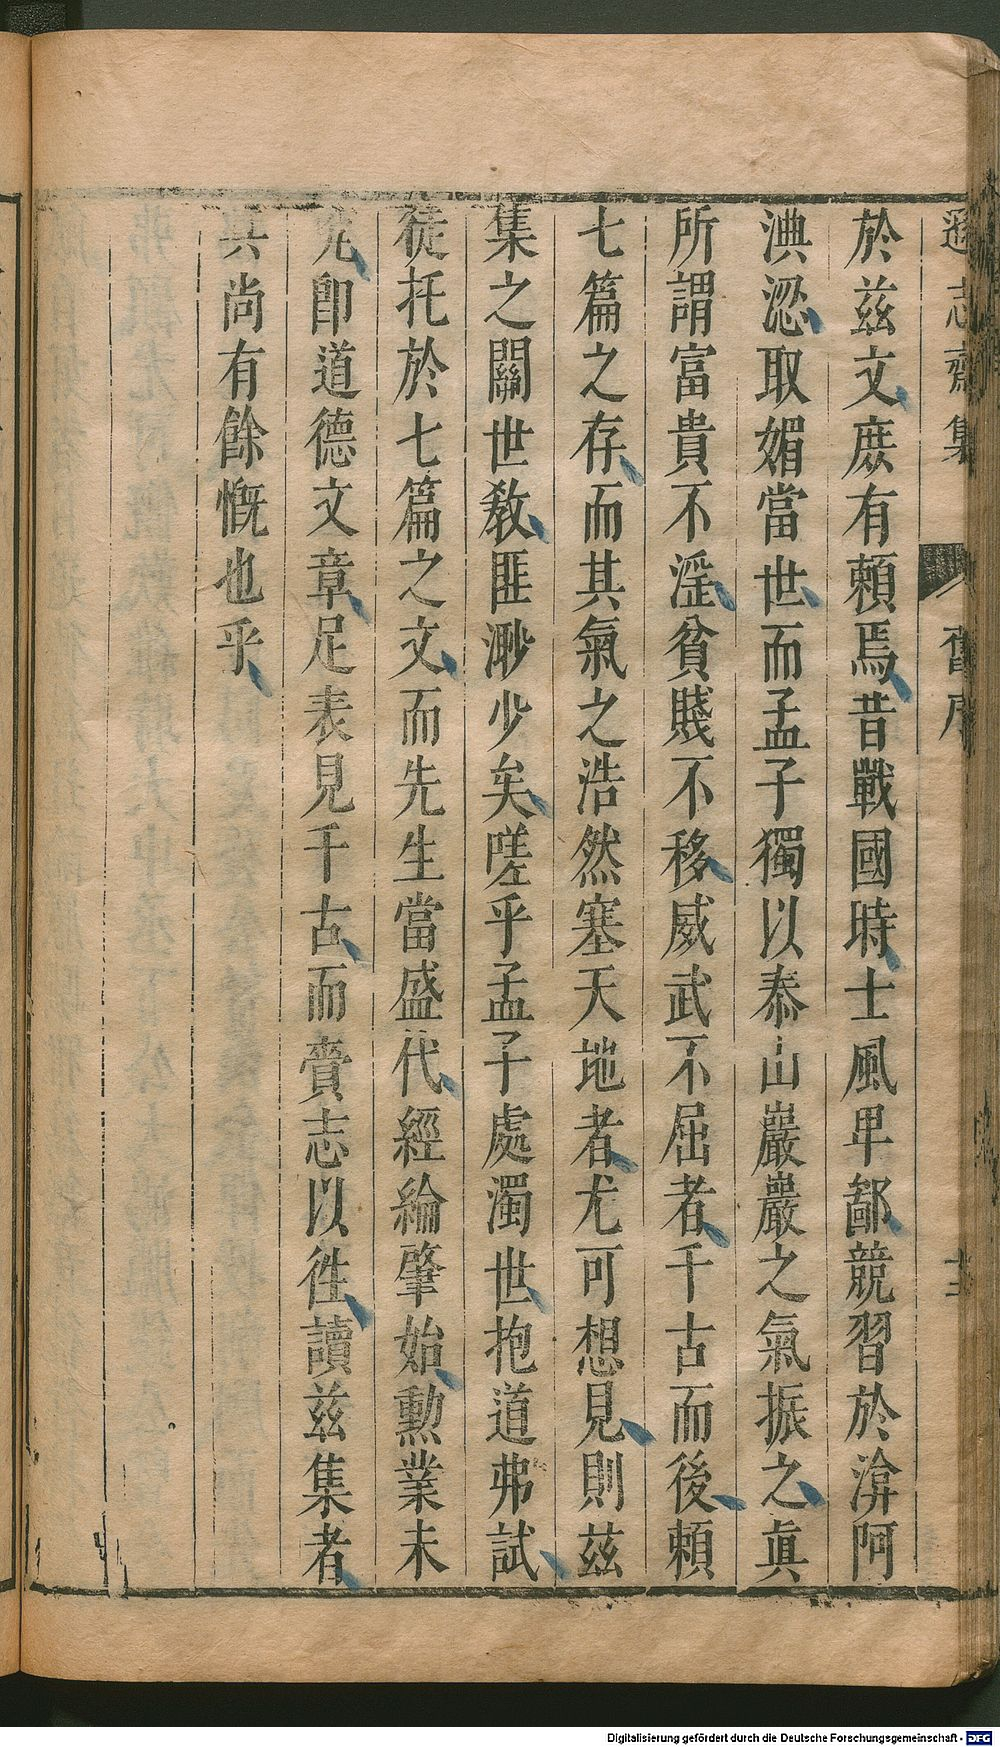 遜志齋集
舊序
於茲文庶有賴焉昔戰國時士風卑鄙競習於渰阿
淟涊取媚當世而孟子獨以泰山巖巖之氣振之眞
所謂富貴不淫貧賤不移威武不屈者千古而後賴
七篇之存而其氣之浩然塞天地者尤可想見則茲
集之關世敎匪渺少矣嗟乎孟子處濁世抱道弗試
徒托於七篇之文而先生當盛代經綸肇始勳業未
究卽道德文章足表見千古而賫志以徃讀茲集者
其尚有餘慨也乎
Digitalisierung gefördert durch die Deutsche Forschungsgemeinschaft - DFG